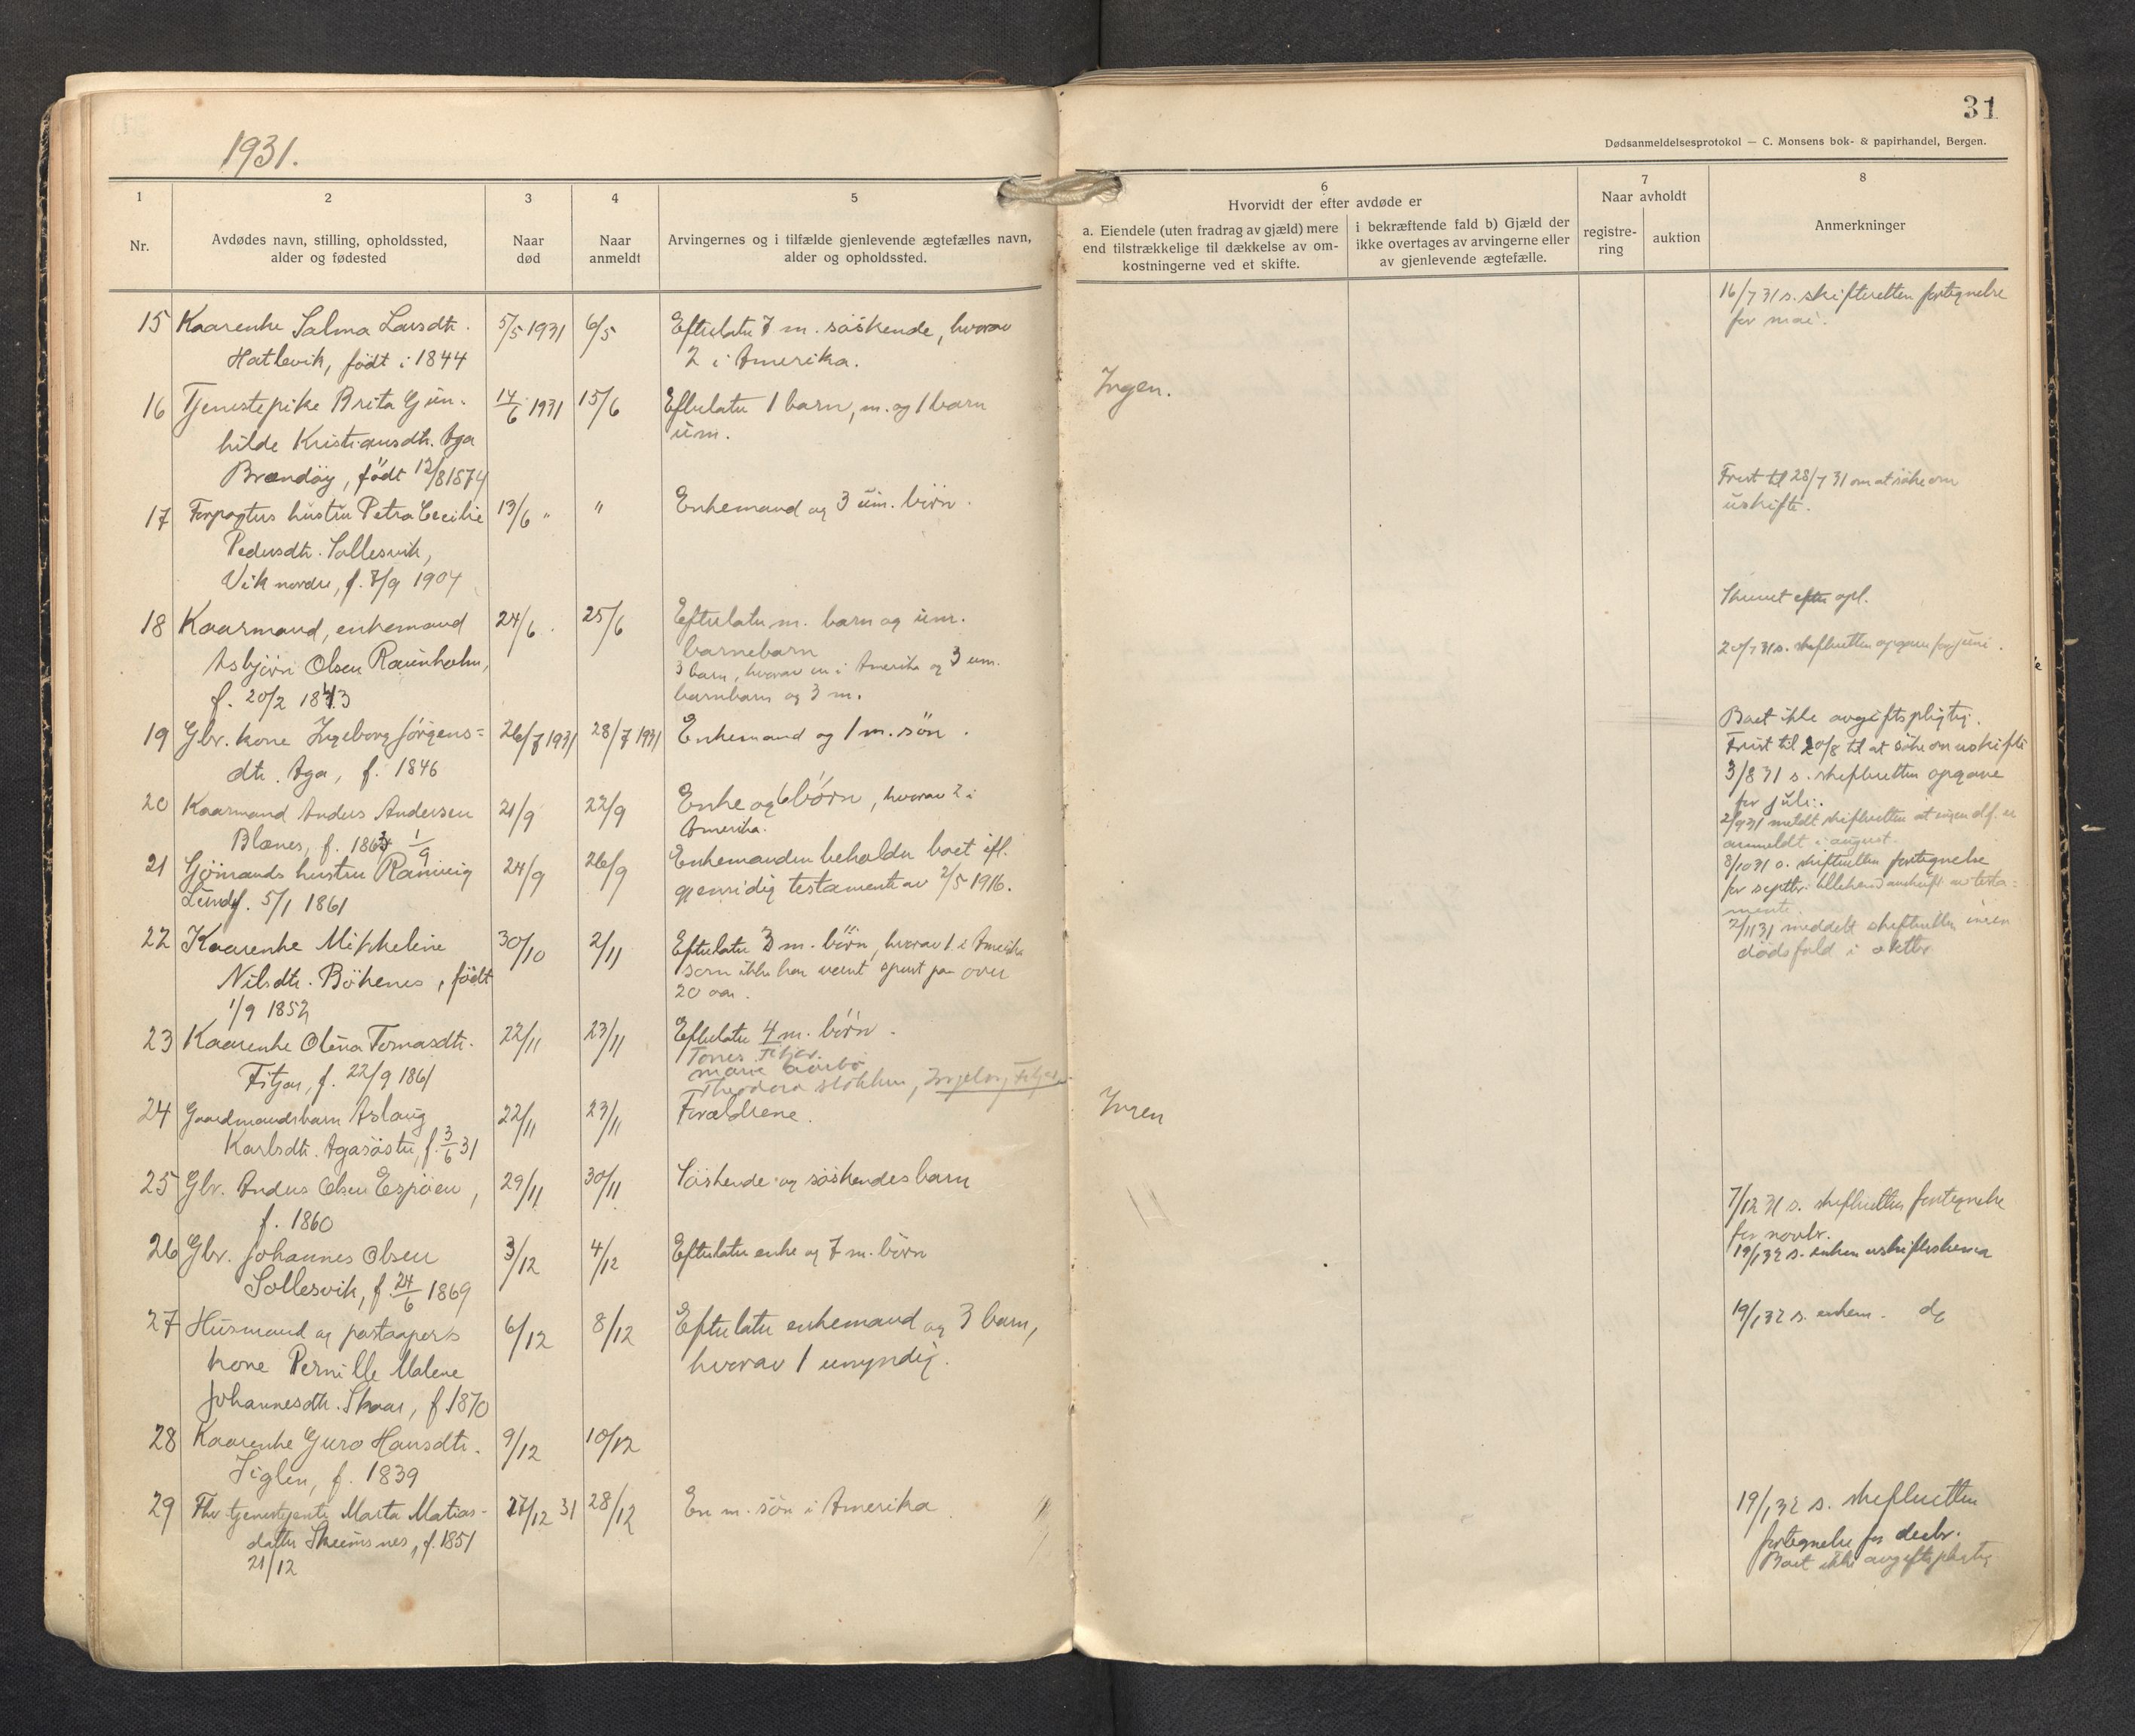 1931.
31
Dødsanmeldelsesprotokol — C. Monsens bok- & papirhandel, Bergen.
1
2
3
4
5
6
7
8
Nr.
Avdødes navn, stilling, opholdssted,
alder og fødested
Naar
død
Naar
anmeldt
Arvingernes og i tilfælde gjenlevende ægtefælles navn,
alder og opholdssted.
Hvorvidt der efter avdøde er
a. Eiendele (uten fradrag av gjæld) mere
end tilstrækkelige til dækkelse av om-
kostningerne ved et skifte.
i bekræftende fald b) Gjæld der
ikke overtages av arvingerne eller
av gjenlevende ægtefælle.
Naar avholdt
registre-
ring
auktion
Anmerkninger
15 Kaarenke Salma Larsdtr. 5/5 1931 6/5 Efterlater 7 m. söskende, hvorav
Hatlevik, født i 1844 2 i Amerika.
16/7 31 s. skifteretten fortegnelse
for mai.
16 Tjenestepike Brita Gun- 14/6 1931 15/6 Efterlater 1 barn, m. og 1 barn
hilde Kristiansdtr. Aga um.
Brandöy, født 12/8 1874
Ingen.
17 Forpagters hustru Petra Cecilie 13/6 " " Enkemand og 3 um. börn.
Pedersdtr. Sollesvik,
Vik nordre, f. 7/9 1904
Frist til 28/7 31 om at söke om
uskifte.
18 Kaarmand, enkemand 24/6. 25/6 Efterlater m. barn og um.
Asbjörn Olsen barnebarn
f. 20/2 1843 3 barn, hvorav en i Amerika og 3 um.
barnbarn og 3 m.
efter opl.
20/7 31 s. skifteretten opgave for juni.
19 Gbr. kone Ingeborg Jörgens= 26/7 1931 28/7 1931 Enkemand og 1 m. sön.
dtr. Aga, f. 1846
Boet ikke avgiftspligtig.
Frist til 20/8 til at söke om uskifte
3/8 31 s. skifteretten opgave
for juli.
20 Kaarmand Anders Andersen 21/9 22/9 Enke og 6 börn, hvorav 2 i
Blænes, f. 1863 1/9 Amerika.
2/9 31 meldt skifteretten at ingen df. er
anmeldt i august.
21 Gjömands hustru Ranveig 24/9 26/9 Enkemanden beholder boet ifl.
Lund f. 5/1 1861 gjensidig testamente av 2/5 1916.
8/10 31 s. skifteretten fortegnelse
for septbr. tillikemed avskrift av testa=
mente.
22 Kaarenke Mikkeline 30/10 2/11 Efterlater 3 m. börn, hvorav 1 i Amerika
Nilsdtr. Bökenes, født som ikke har været spurt paa over
1/9 1852 20 aar.
2/11 31 meddelt skifteretten ingen
dödsfald i oktbr.
23 Kaarenke Olena Tomasdtr. 22/11 23/11 Efterlater 4 m. börn.
Fitjar, f. 22/9 1861 Tones Fitjar.
Marie
Theodora Stokken, Ingeborg Fitjar
24 Gaardmandsbarn Aslaug 22/11 23/11 Forældrene.
Karlsdtr. Agasöster, f. 3/6 31
Ingen
25 Gbr. Anders Olsen Espöen, 29/11 30/11 Söskende og söskendesbarn
f. 1860
7/12 31 s. skifteretten fortegnelse
for novbr.
26 Gbr. Johannes Olsen 3/12 4/12 Efterlater enke og 7 m. börn
Sollesvik, f 24/6 1869
19/1 32 s. enken uskifteskema
27 Husmand og postaapers 6/12 8/12 Efterlater enkemand og 3 barn,
kone Pernille Malene hvorav 1 umyndig.
Johannesdtr. Skaar, f 1870
19/1 32 s. enkem. do
28 Kaarenke Guro Hansdtr. 9/12 10/12
Siglen, f. 1839
29 Fhv tjenestjente Marta Matias- 27/12 31 28/12 En m. sön i Amerika
datter Skumsnes, f. 1851
21/12
19/1 32 s. skifteretten
fortegnelse for decbr.
Boet ikke avgiftspligtig